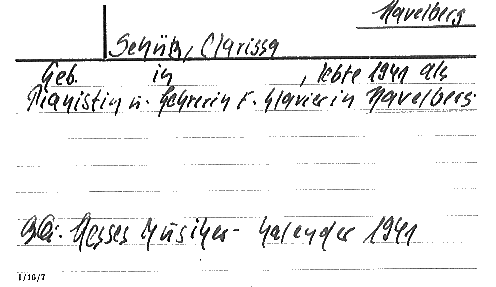 Havelberg
Schütz, Clarissa
Geb. in , lebte 1941 als
Pianistin u. Lehrerin f. Klavier in Havelberg.
Hesses Musiker-Kalender 1941
1/16/7